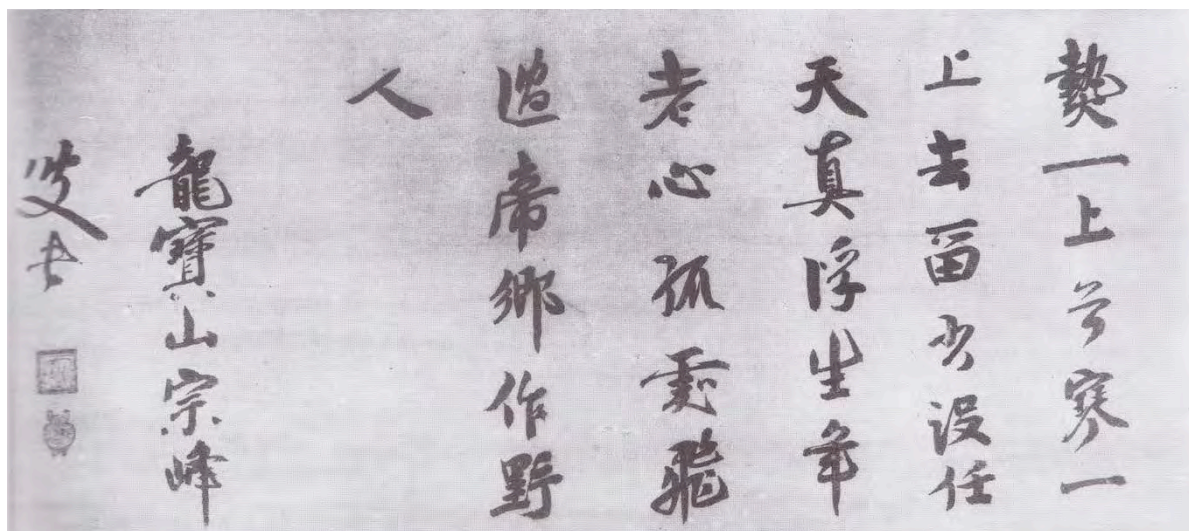 熱一上兮寒一
上去留出没任
天真浮生年
老心孤雲飛
過帝鄉作野
人
龍寶山宗峰
叟書